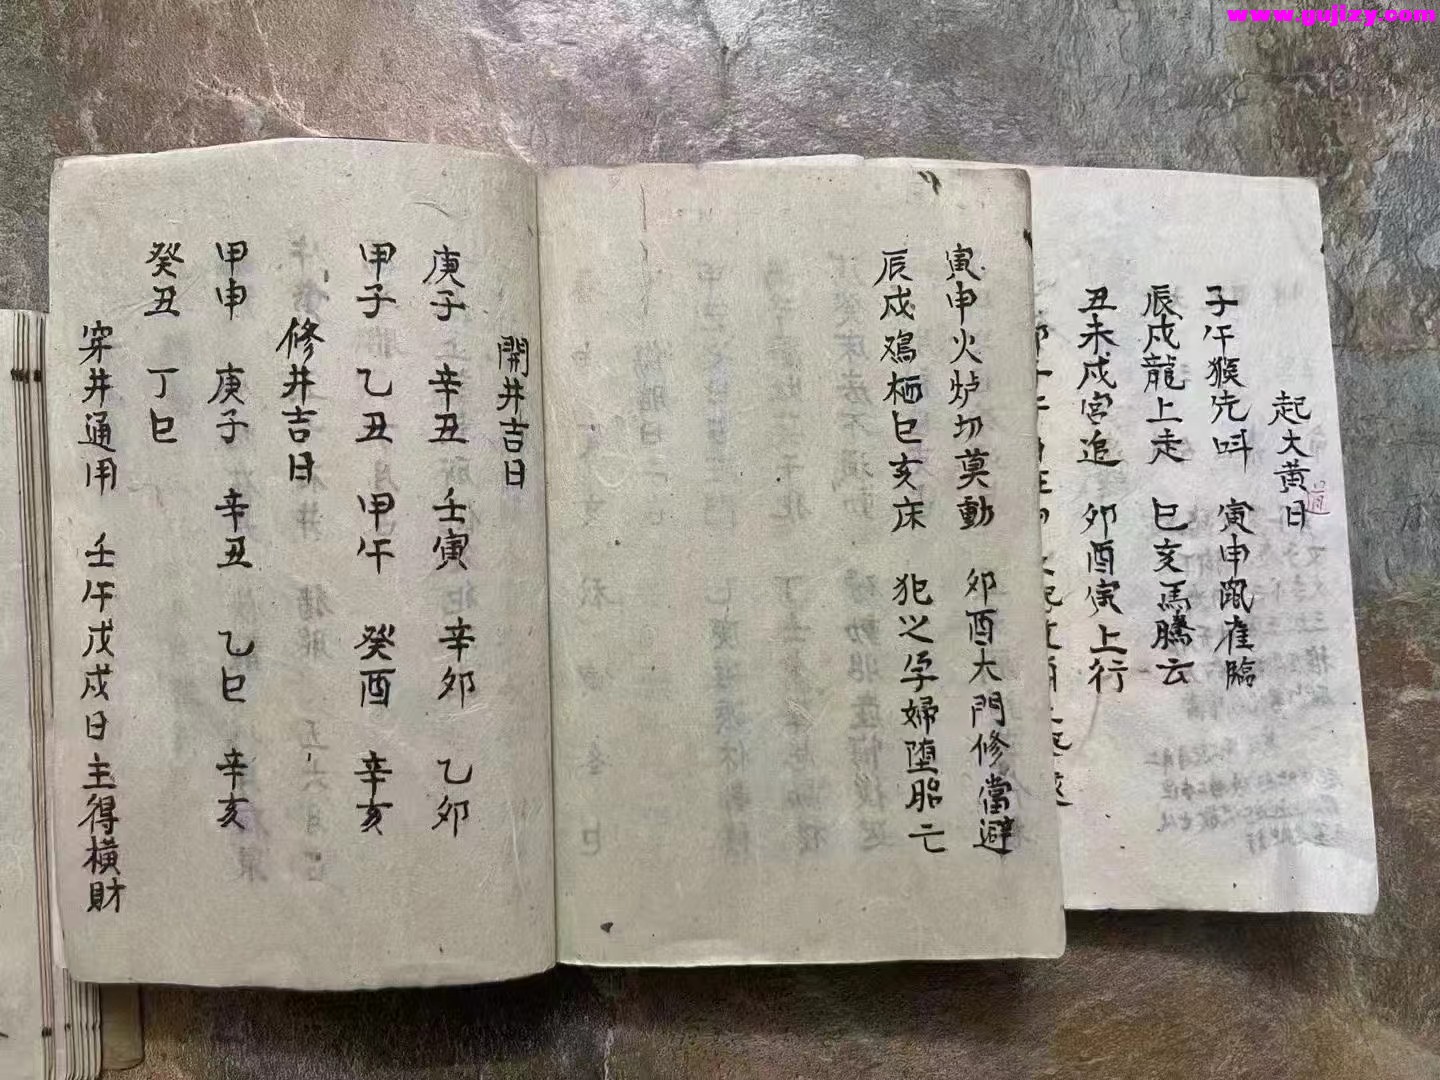 www.gujizy.com
起大黃道日
子午猴先叫 寅申鼠雀臨
辰戌龍上走 巳亥馬騰云
丑未戌宮追 卯酉寅上行
寅申火炉切莫動 卯酉大門修當避
辰戌鸡栖巳亥床 犯之孕婦堕胎亡
開井吉日
庚子 辛丑 壬寅 辛卯 乙卯
甲子 乙丑 甲午 癸酉 辛亥
修井吉日
甲申 庚子 辛丑 乙巳 辛亥
癸丑 丁巳
穿井通用 壬午戊戌日主得橫財